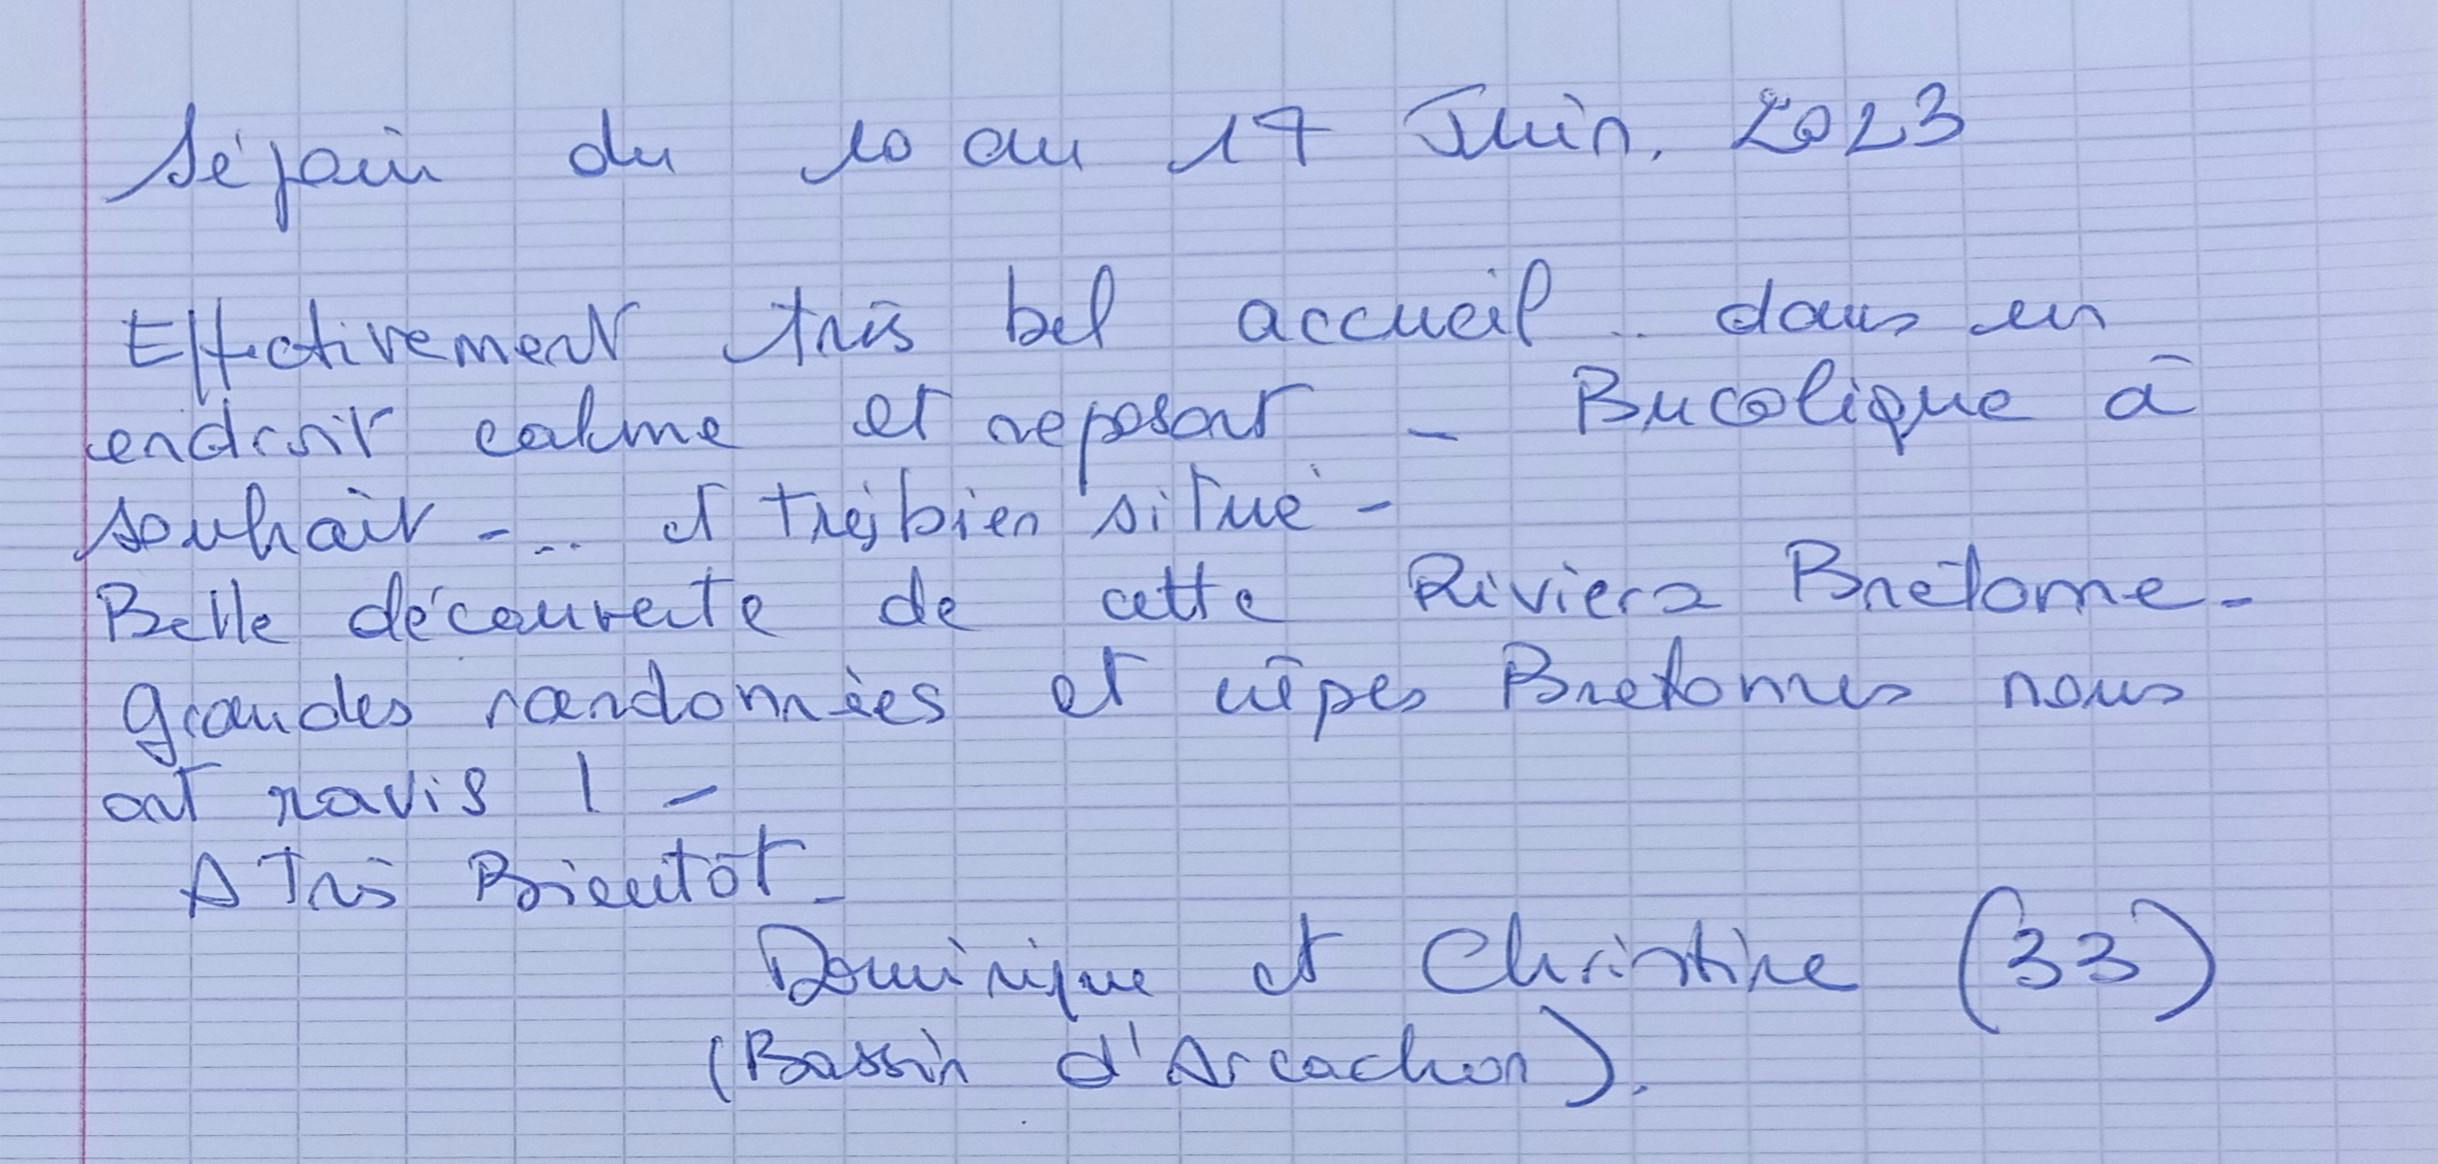 Séjour du 10 au 17 Juin. 2023
Effectivement très bel accueil .. dans un
endroit calme et reposant - Bucolique à
souhait - ... et très bien situé -
Belle découverte de cette Riviera Bretonne -
Grandes randonnées et crêpes Bretonnes nous
ont ravis ! -
A Très Bientôt -
Dominique et Christine (33)
(Bassin d'Arcachon).